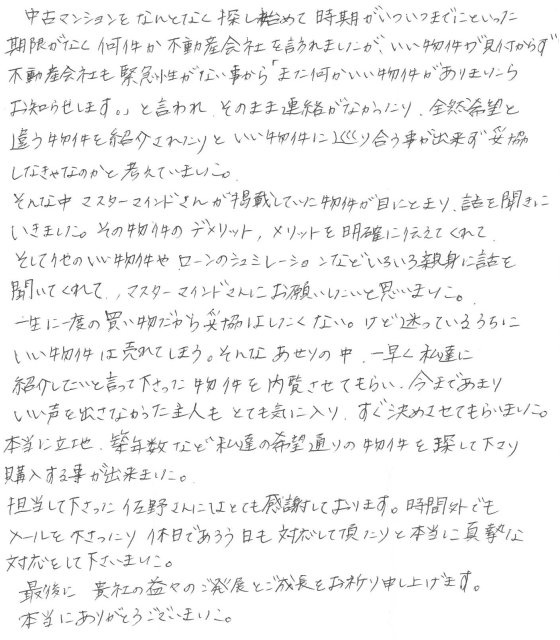 中古マンションをなんとなく探し始めて時期がいついつまでにといった
期限がなく何件か不動産会社を訪れましたが、いい物件が見付からず
不動産会社も緊急性がない事から「また何かいい物件がありましたら
お知らせします。」と言われ、そのまま連絡がなかったり、全然希望と
違う物件を紹介されたりといい物件に巡り合う事が出来ず妥協
しなきゃなのかと考えていました。
そんな中マスターマインドさんが掲載していた物件が目にとまり、話を聞きに
いきました。その物件のデメリット、メリットを明確に伝えてくれて、
そして他のいい物件やローンのシュミレーションなどいろいろ親身に話を
聞いてくれて、マスターマインドさんにお願いしたいと思いました。
一生に一度の買い物だから妥協はしたくない。けど迷っているうちに
いい物件は売れてしまう。そんなあせりの中、一早く私達に
紹介したいと言って下さった物件を内覧させてもらい、今まであまり
いい声を出さなかった主人もとても気に入り、すぐ決めさせてもらいました。
本当に立地、築年数など私達の希望通りの物件を探して下さり
購入する事が出来ました。
担当して下さった佐野さんにはとても感謝しております。時間外でも
メールを下さったり休日であろう日も対応して頂いたりと本当に真摯な
対応をして下さいました。
最後に 貴社の益々のご発展とご成長をお祈り申し上げます。
本当にありがとうございました。